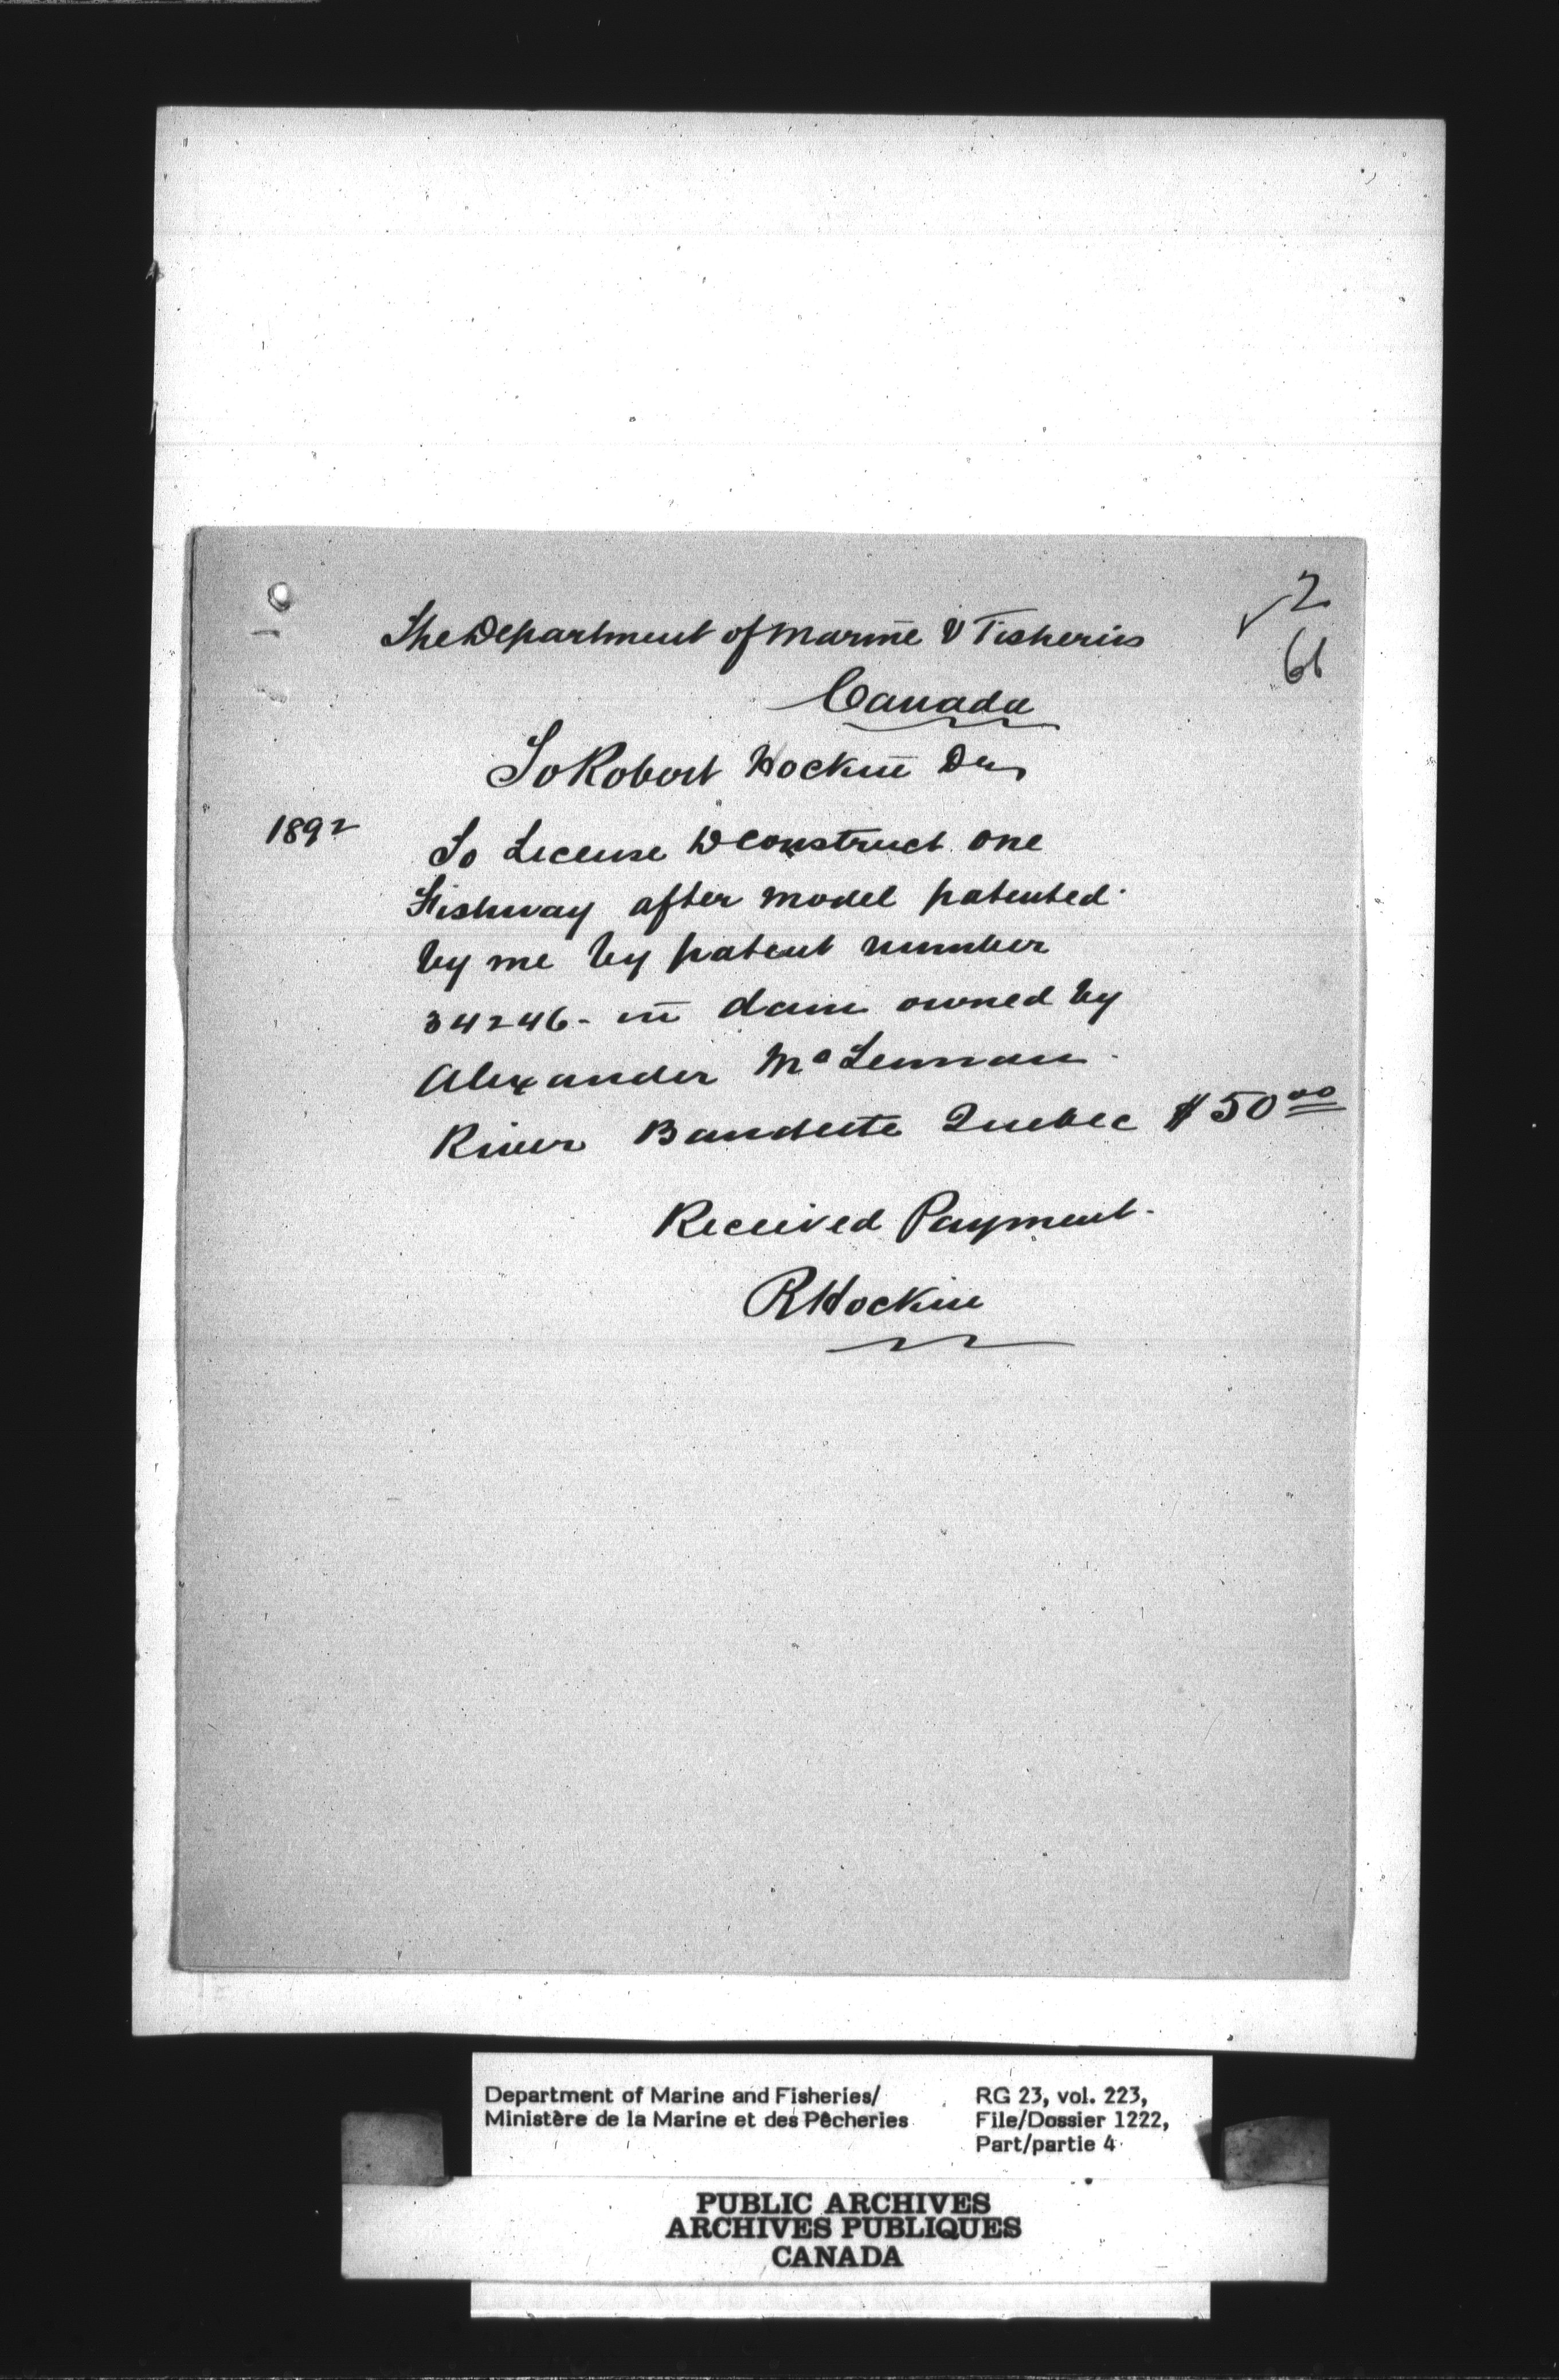 2
61
The Department of Marine & Fisheries
Canada
To Robert Hockin Dr
1892
To License to construct one
Fishway after model patented
by me by patent number
34246 - in dam owned by
Alexander McLennan
River Baudette Quebec $50.00
Received Payment.
R Hockin
Department of Marine and Fisheries/
Ministère de la Marine et des Pêcheries
RG 23, vol. 223,
File/Dossier 1222,
Part/partie 4
PUBLIC ARCHIVES
ARCHIVES PUBLIQUES
CANADA